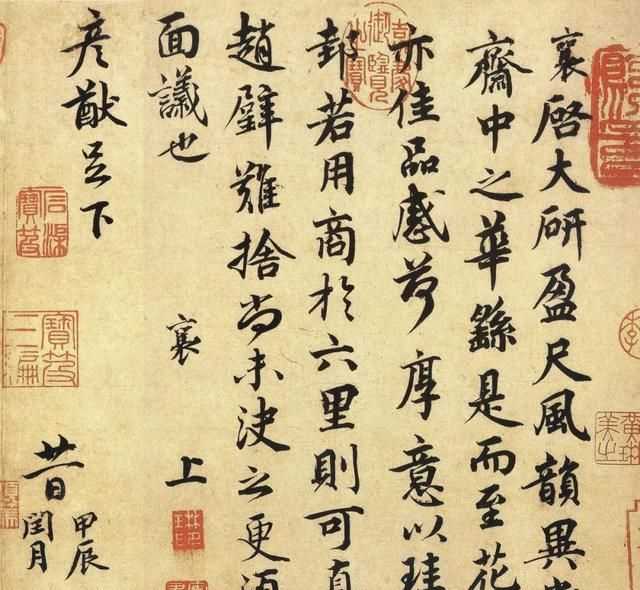 襄啓大研盈尺風韻異
齋中之華繇是而至花
亦佳品感荷厚意以珪
邽若用商於六里則可真
趙璧難捨尚未決之更須
面議也
襄 上
彥猷足下
廿一日
甲辰
閏月
黃琳美之